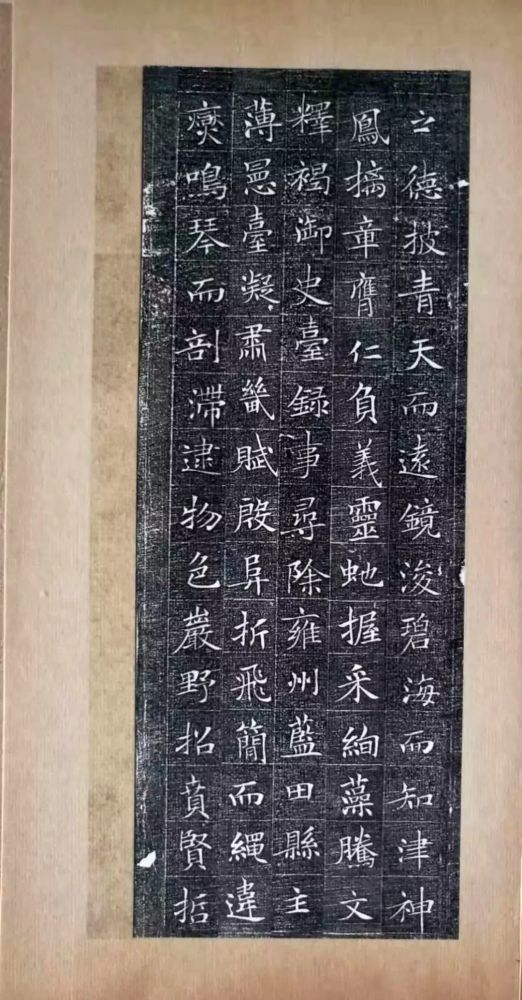 之德披青天而遠鏡浚碧海而知津神
鳳摛章膺仁負義靈虵握采絢藻騰文
釋褐御史臺録事尋除雍州藍田縣主
薄曷臺凝肅畿賦殷阜折飛簡而繩違
奕鳴琴而剖滯逮物色巖野招賁賢哲